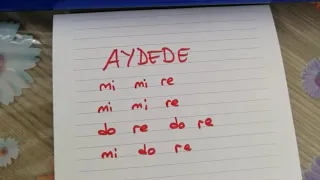 AYDEDE
mi mi re
mi mi re
do re do re
mi do re